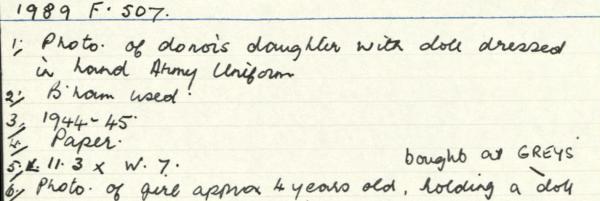 1989 F. 507.
1; Photo. of donor's daughter with doll dressed
in hand Army Uniform
2; B'ham used.
3, 1944-45.
4, Paper.
5, L 11.3 x W. 7.
bought at GREYS
6, Photo. of girl approx 4 years old, holding a doll